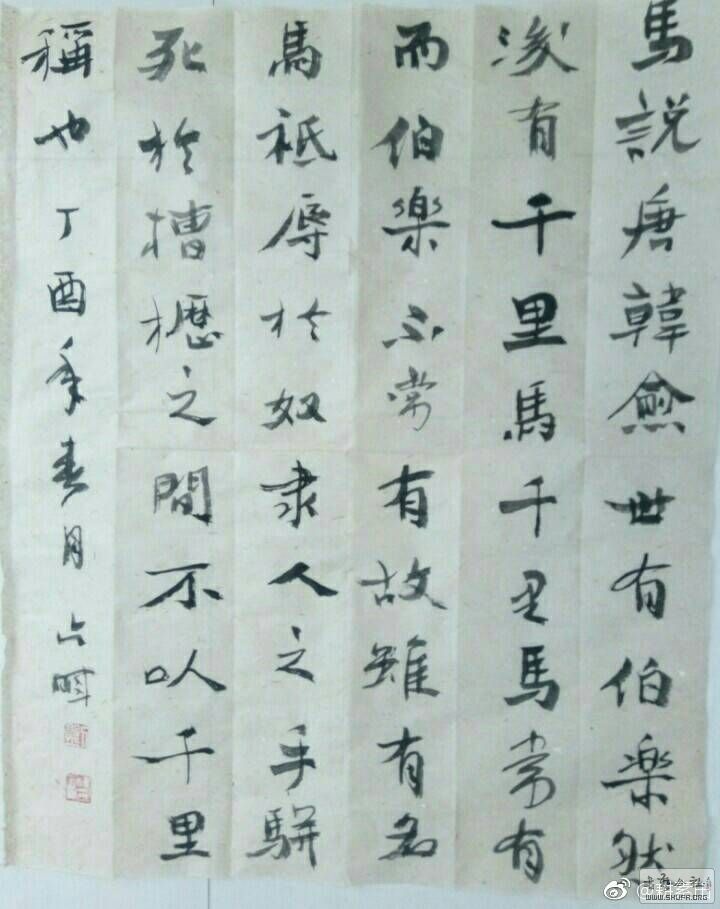 馬説唐韓愈世有伯樂然
後有千里馬千里馬常有
而伯樂不常有故雖有名
馬祗辱於奴隶人之手駢
死於槽櫪之間不以千里
稱也丁酉年春月
WWW.SHUFA.ORG